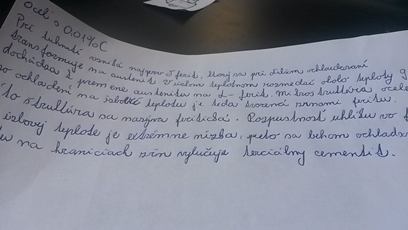 Oceľ s 0.01%C
Pri tuhnutí vzniká najprv δ ferit, ktorý sa pri ďalšom ochladzovaní
transformuje na austenit. V úzkom teplotnom rozmedzí okolo teploty 9
dochádza k premene austenitu na α-ferit. Mikroštruktúra ocele
po ochladení na izbovú teplotu je teda tvorená zrnami feritu.
Táto štruktúra sa nazýva feritická. Rozpustnosť uhlíku vo f
izbovej teplote je extrémne nízka, preto sa behom ochladz
na hraniciach zŕn vylučuje terciálny cementit.